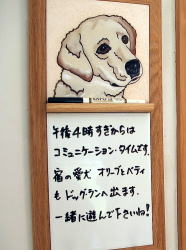 午後4時すぎからは
コミュニケーション・タイムです。
宿の愛犬 オリーブとパティ
も ドッグ・ランへ出ます。
一緒に遊んで下さいね!